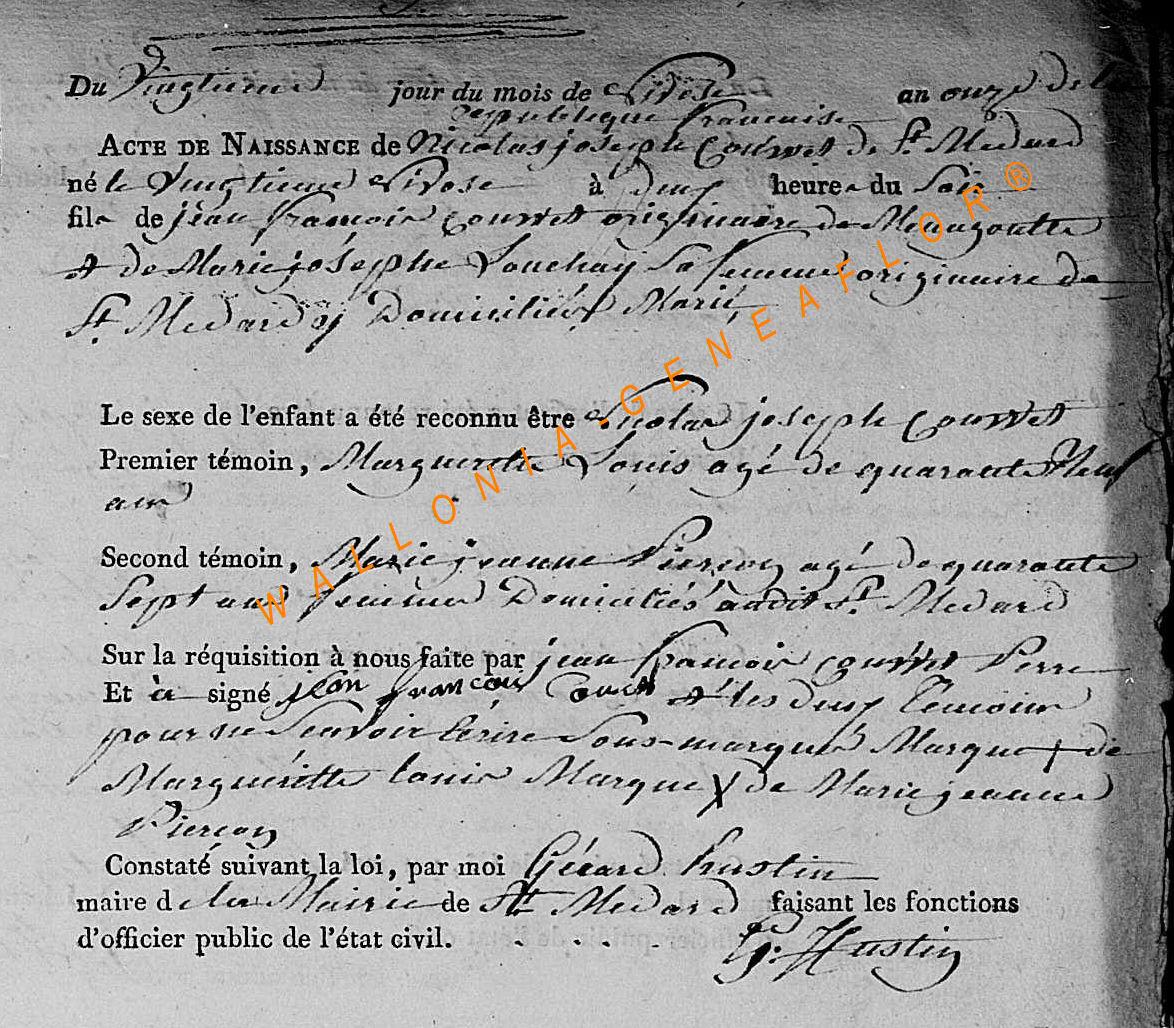 Du Vingtieme jour du mois de Nivose an onze de la
republique francaise
ACTE DE NAISSANCE de Nicolas joseph Courset de St. Medard
né le Vingtieme Nivose à deux heures du Soir
fils de jean francois Courset originaire de Menugoutte
et de Marie joséphe Louchay Sa femme originaire de
St. Medard y Domiciliés Marié,
Le sexe de l'enfant a été reconnu être Nicolas joseph Courset
Premier témoin, Margueritte Louis agé de quarante Neuf
ans
Second témoin, Marie jeanne Piercoy agé de quarante
Sept ans femmes Domiciliés audit St. Medard
Sur la réquisition à nous faite par jean francois Courset Perre
Et a signé jean francois et les deux Temoins
pour ne Scavoir Ecrire Sous-marqué Marque + de
Marguéritte Louis Marque X de Marie jeanne
Piercoy
Constaté suivant la loi, par moi Gérard hustin
maire de la Mairie de St. Medard faisant les fonctions
d'officier public de l'état civil. . . . . G. Hustin
WALLONIA-GENEAFLOR®